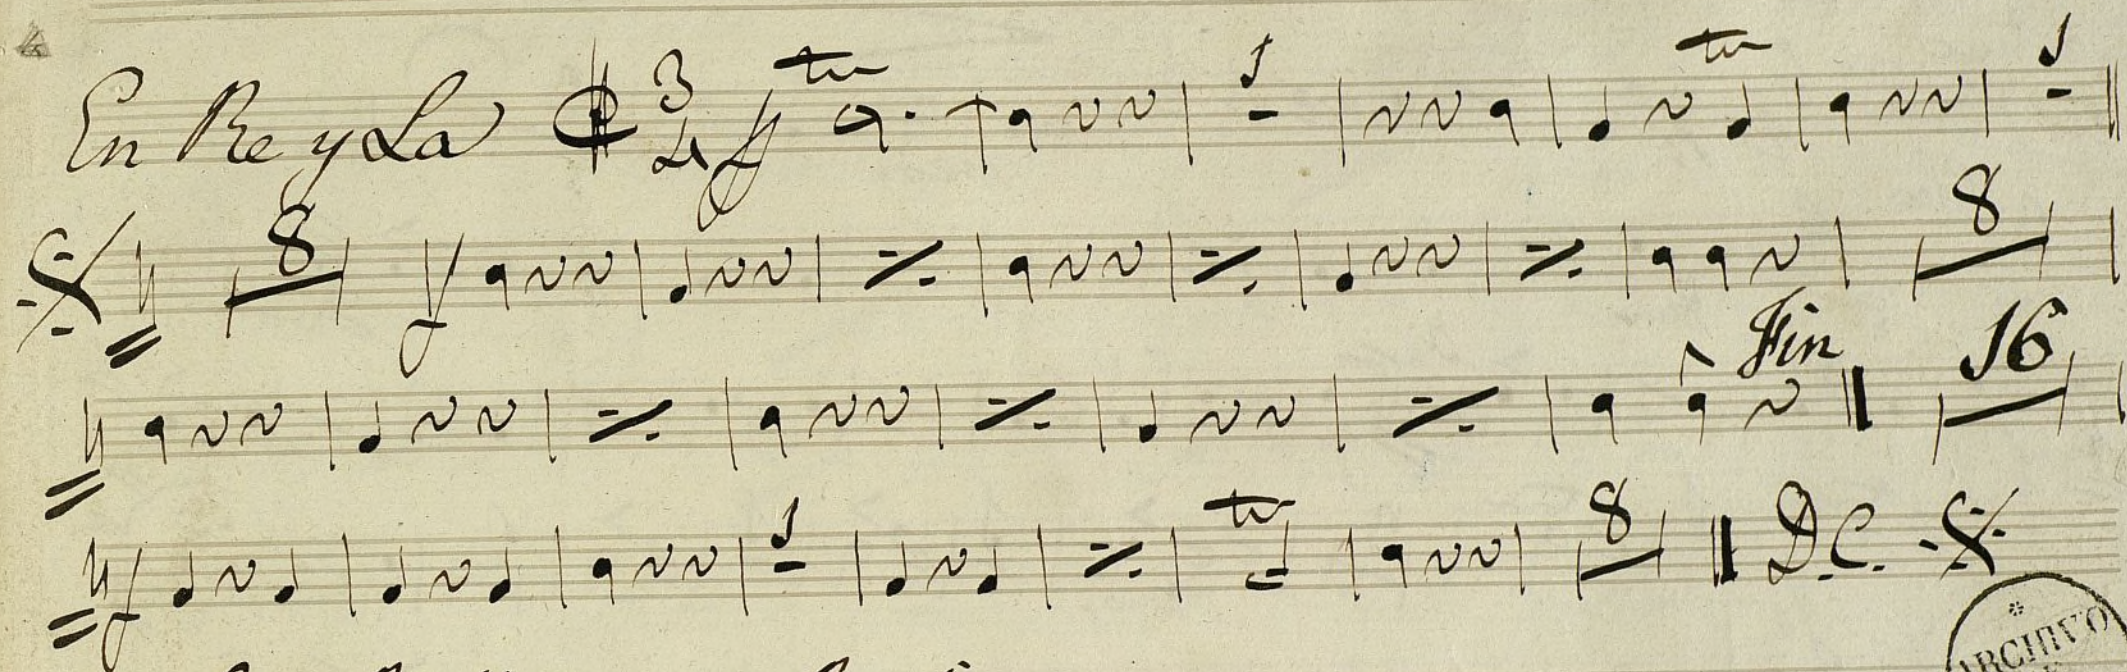 En Re y La 3 4 ff tr 1 tr 1
8 f 8
Fin 16
f 1 tr 8 D.C.
ARCHIVO